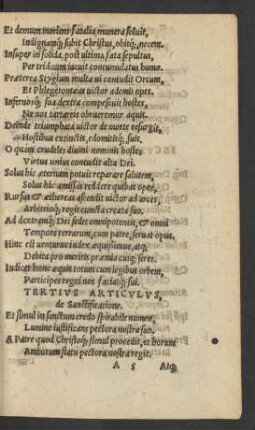 Et demum moriens fatalia munera soluit,
Indignamq́; subit Christus, obitq́; necem.
Insuper in solida, post ultima fata sepultus,
Per triduum iacuit contumulatus humo.
Præterea Stygium multa ui contudit Orcum,
Et Phlegetontæas uictor ademit opes.
Infernosq́; sua dextra compescuit hostes,
Ne nos tartareis obrueremur aquis.
Deinde triumphata uictor de morte resurgit,
Hostibus extinctis, edomitisq́; suis.
O quàm crudeles diuini nominis hostes,
Virtus unius contudit alta Dei.
Solus hic æternam potuit reparare salutem,
Solus hic amissas reddere quibat opes,
Rursus & æthereas ascendit uictor ad arces,
Arbitrioq́; regit cuncta creata suo.
Ad dextramq́; Dei sedet omnipotentis, & omni
Tempore terrarum, cum patre, seruat opus.
Hinc est uenturus iudex æquissimus, atq;
Debita pro meritis præmia cuiq; feret.
Iudicet hunc æquis totum cum legibus orbem,
Participes regni nos faciatq́; sui.
TERTIVS ARTICVLVS,
de Sanctificatione.
Et simul in sanctum credo spirabile numen,
Lumine iustificans pectora nostra suo.
A Patre quod Christoq́; simul procedit, et horum
Amborum statu pectora nostra regit.
A 5